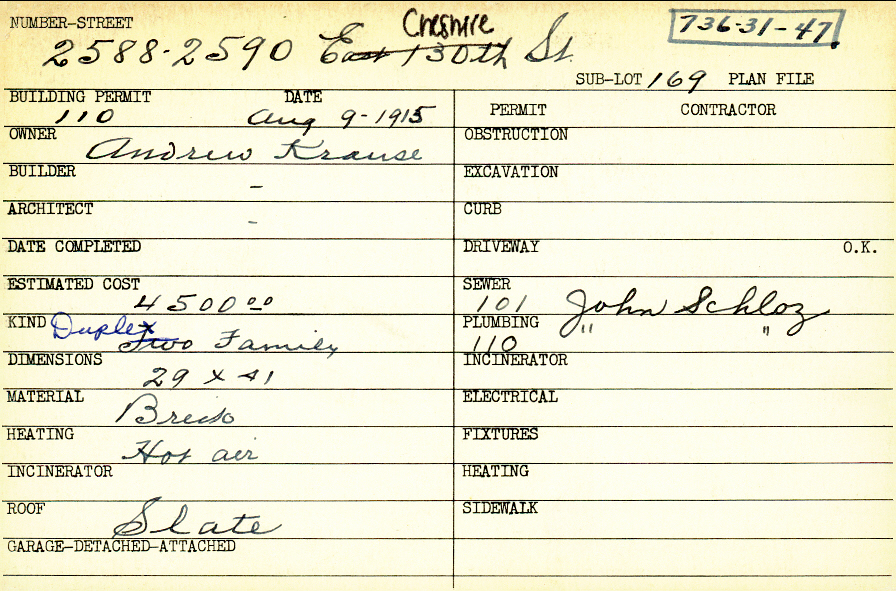 NUMBER-STREET
Cheshire
736-31-47
2588-2590 East 130th St.
SUB-LOT 169 PLAN FILE
BUILDING PERMIT DATE
110 Aug 9-1915
PERMIT CONTRACTOR
OWNER Andrew Krause
OBSTRUCTION
BUILDER -
EXCAVATION
ARCHITECT -
CURB
DATE COMPLETED
DRIVEWAY O.K.
ESTIMATED COST
4500 00
SEWER
101 John Schloz
KIND Duplex
Two Family
PLUMBING " "
110
DIMENSIONS
29 x 41
INCINERATOR
MATERIAL
Brick
ELECTRICAL
HEATING
Hot air
FIXTURES
INCINERATOR
HEATING
ROOF
Slate
SIDEWALK
GARAGE-DETACHED-ATTACHED